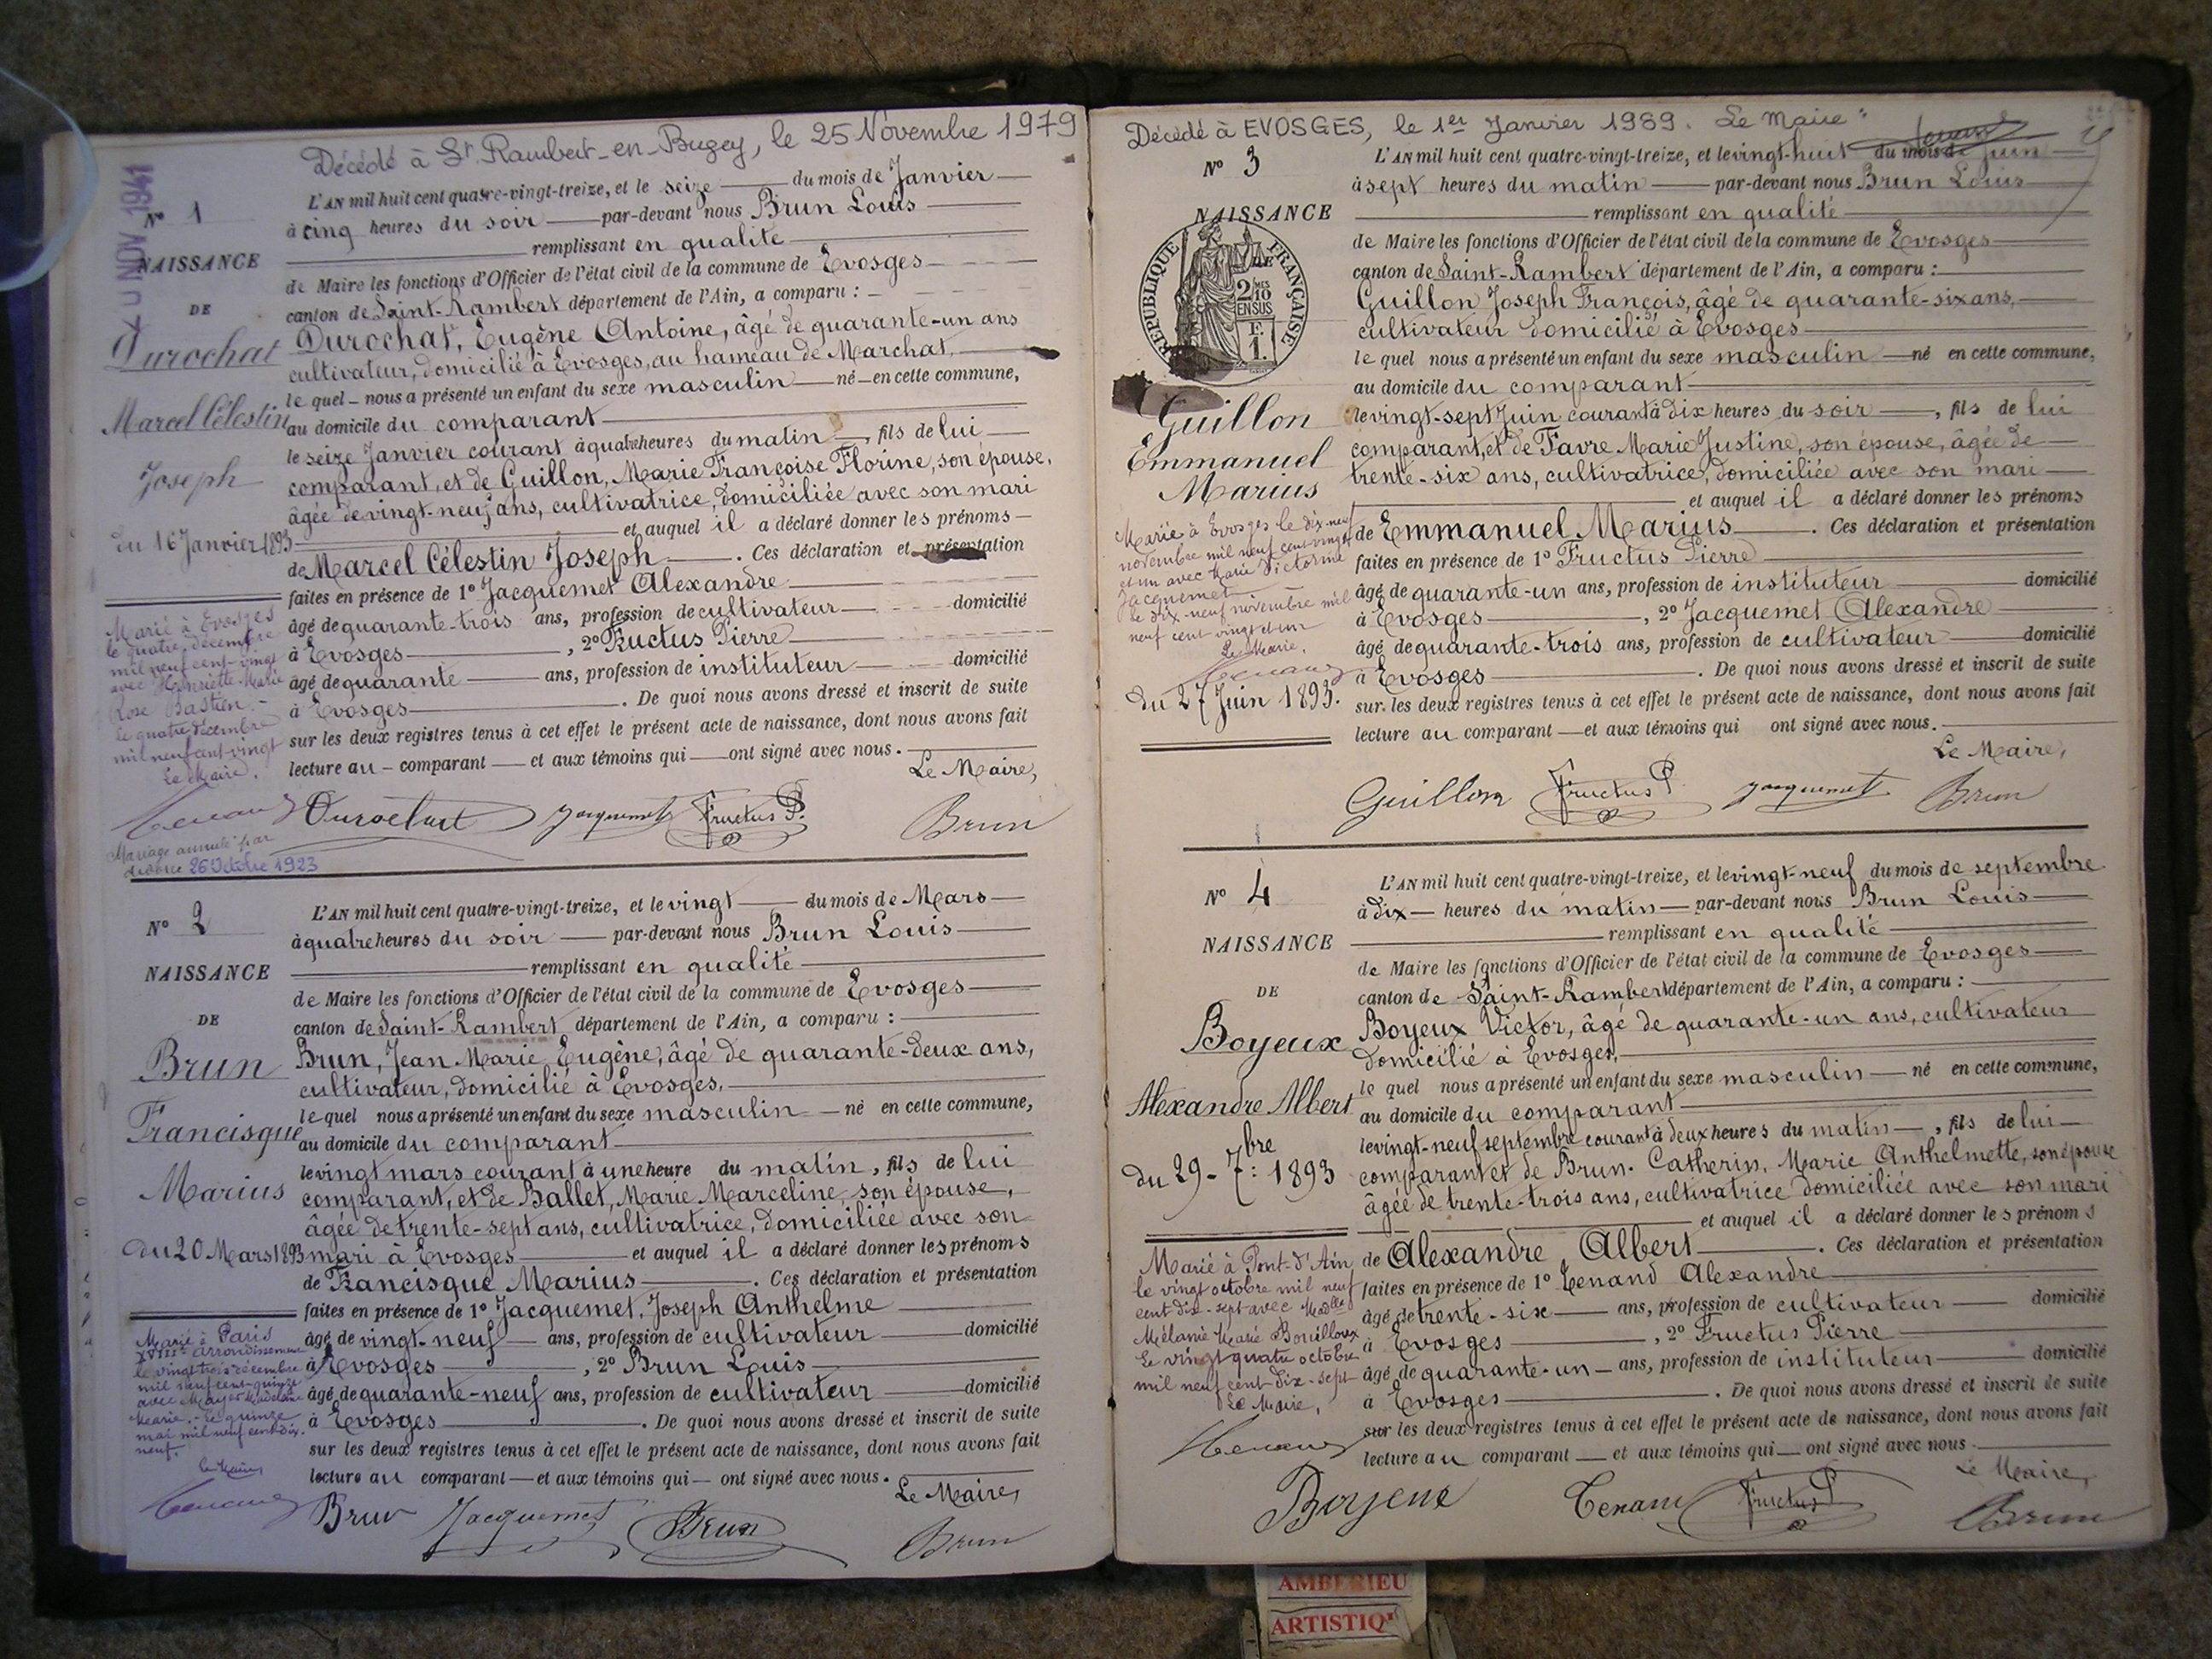 Décédé à St Rambert-en-Bugey, le 25 Novembre 1979
NOV 1941
N° 1
NAISSANCE
DE
Durochat
Marcel Célestin
Joseph
du 16 Janvier 1893
L'AN mil huit cent quatre-vingt-treize, et le seize du mois de Janvier
à cinq heures du soir par-devant nous Brun Louis
remplissant en qualité
de Maire les fonctions d'Officier de l'état civil de la commune de Evosges
canton de Saint-Rambert département de l'Ain, a comparu :
Durochat, Eugène Antoine, âgé de quarante-un ans
cultivateur, domicilié à Evosges, au hameau de Marchat,
le quel nous a présenté un enfant du sexe masculin né en cette commune,
au domicile du comparant
le seize Janvier courant à quatre heures du matin, fils de lui
comparant, et de Guillon, Marie Françoise Florine, son épouse,
âgée de vingt-neuf ans, cultivatrice, domiciliée avec son mari
et auquel il a déclaré donner les prénoms
de Marcel Célestin Joseph. Ces déclaration et présentation
faites en présence de 1° Jacquemet Alexandre
âgé de quarante-trois ans, profession de cultivateur domicilié
à Evosges, 2° Fructus Pierre
âgé de quarante ans, profession de instituteur domicilié
à Evosges. De quoi nous avons dressé et inscrit de suite
sur les deux registres tenus à cet effet le présent acte de naissance, dont nous avons fait
lecture au comparant et aux témoins qui ont signé avec nous.
Le Maire,
Marié à Evosges
le quatre décembre
mil neuf cent-vingt
avec Henriette-Marie
Rose Bastien.-
Le quatre décembre
mil neuf cent-vingt
Le Maire.
Durochat Jacquemet Fructus P. Brun
Mariage annulé par
divorce 26 Octobre 1923
N° 2
NAISSANCE
DE
Brun
Francisque
Marius
du 20 Mars 1893
L'AN mil huit cent quatre-vingt-treize, et le vingt du mois de Mars
à quatre heures du soir par-devant nous Brun Louis
remplissant en qualité
de Maire les fonctions d'Officier de l'état civil de la commune de Evosges
canton de Saint-Rambert département de l'Ain, a comparu :
Brun, Jean Marie Eugène, âgé de quarante-deux ans,
cultivateur, domicilié à Evosges.
le quel nous a présenté un enfant du sexe masculin né en cette commune,
au domicile du comparant
le vingt mars courant à une heure du matin, fils de lui
comparant, et de Ballet, Marie Marceline, son épouse,
âgée de trente-sept ans, cultivatrice, domiciliée avec son
mari à Evosges et auquel il a déclaré donner les prénoms
de Francisque Marius. Ces déclaration et présentation
faites en présence de 1° Jacquemet, Joseph Anthelme
âgé de vingt-neuf ans, profession de cultivateur domicilié
à Evosges, 2° Brun Louis
âgé de quarante-neuf ans, profession de cultivateur domicilié
à Evosges. De quoi nous avons dressé et inscrit de suite
sur les deux registres tenus à cet effet le présent acte de naissance, dont nous avons fait
lecture au comparant et aux témoins qui ont signé avec nous.
Le Maire,
Marié à Paris
XVIIIe arrondissement
le vingt trois décembre
mil neuf cent-quinze
avec Mayer Madeleine
Marie.- Le quinze
mai mil neuf cent dix-
neuf.
Le Maire
Brun Jacquemet Brun Brun
Décédé à EVOSGES, le 1er Janvier 1989. Le Maire
N° 3
NAISSANCE
DE
REPUBLIQUE FRANÇAISE
2 MES
10
EN SUS
F.
1.
Guillon
Emmanuel
Marius
du 27 Juin 1893.
L'AN mil huit cent quatre-vingt-treize, et le vingt-huit du mois de Juin
à sept heures du matin par-devant nous Brun Louis
remplissant en qualité
de Maire les fonctions d'Officier de l'état civil de la commune de Evosges
canton de Saint-Rambert département de l'Ain, a comparu :
Guillon Joseph François, âgé de quarante-six ans,
cultivateur domicilié à Evosges
le quel nous a présenté un enfant du sexe masculin né en cette commune,
au domicile du comparant
le vingt-sept Juin courant à dix heures du soir, fils de lui
comparant, et de Favre Marie Justine, son épouse, âgée de
trente-six ans, cultivatrice, domiciliée avec son mari
et auquel il a déclaré donner les prénoms
de Emmanuel Marius. Ces déclaration et présentation
faites en présence de 1° Fructus Pierre
âgé de quarante-un ans, profession de instituteur domicilié
à Evosges, 2° Jacquemet Alexandre
âgé de quarante-trois ans, profession de cultivateur domicilié
à Evosges. De quoi nous avons dressé et inscrit de suite
sur les deux registres tenus à cet effet le présent acte de naissance, dont nous avons fait
lecture au comparant et aux témoins qui ont signé avec nous.
Le Maire,
Marié à Evosges le dix-neuf
novembre mil neuf cent vingt
et un avec Marie Victorine
Jacquemet
Le dix-neuf novembre mil
neuf cent vingt et un
Le Maire.
Guillon Fructus P. Jacquemet Brun
N° 4
NAISSANCE
DE
Boyeux
Alexandre Albert
du 29-7bre 1893
L'AN mil huit cent quatre-vingt-treize, et le vingt-neuf du mois de septembre
à dix heures du matin par-devant nous Brun Louis
remplissant en qualité
de Maire les fonctions d'Officier de l'état civil de la commune de Evosges
canton de Saint-Rambert département de l'Ain, a comparu :
Boyeux Victor, âgé de quarante-un ans, cultivateur
domicilié à Evosges,
le quel nous a présenté un enfant du sexe masculin né en cette commune,
au domicile du comparant
le vingt-neuf septembre courant à deux heures du matin, fils de lui
comparant et de Brun. Catherin, Marie Anthelmette, son épouse
âgée de trente-trois ans, cultivatrice domiciliée avec son mari
et auquel il a déclaré donner les prénoms
de Alexandre Albert. Ces déclaration et présentation
faites en présence de 1° Tenand Alexandre
âgé de trente-six ans, profession de cultivateur domicilié
à Evosges, 2° Fructus Pierre
âgé de quarante-un ans, profession de instituteur domicilié
à Evosges. De quoi nous avons dressé et inscrit de suite
sur les deux registres tenus à cet effet le présent acte de naissance, dont nous avons fait
lecture au comparant et aux témoins qui ont signé avec nous.
Le Maire,
Marié à Pont-d'Ain
le vingt octobre mil neuf
cent dix-sept avec Madlle
Mélanie Marie Bouilloux
Le vingt quatre octobre
mil neuf cent dix-sept
Le Maire,
Boyeux Tenand Fructus P. Brun
AMBERIEU
ARTISTIQ